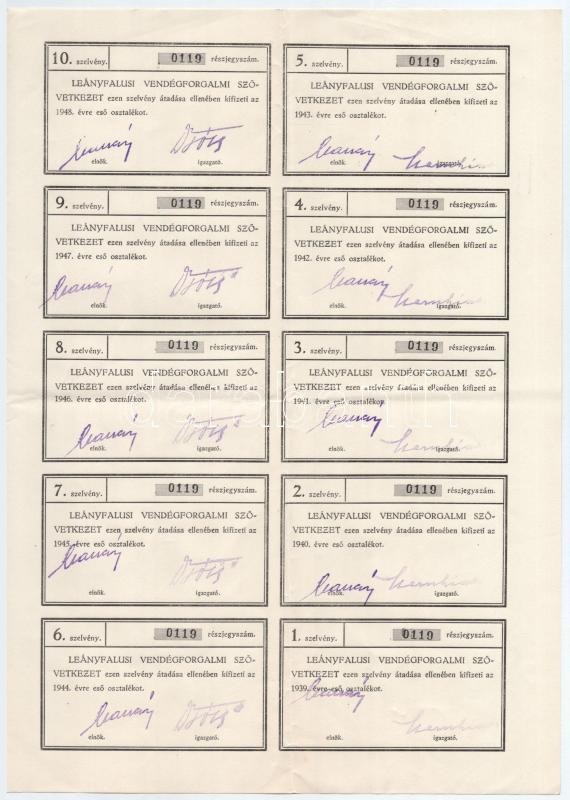 10. szelvény. 0119 részjegyszám.
LEÁNYFALUSI VENDÉGFORGALMI SZÖ-
VETKEZET ezen szelvény átadása ellenében kifizeti az
1948. évre eső osztalékot.
elnök. igazgató.
5. szelvény. 0119 részjegyszám.
LEÁNYFALUSI VENDÉGFORGALMI SZÖ-
VETKEZET ezen szelvény átadása ellenében kifizeti az
1943. évre eső osztalékot.
elnök.
9. szelvény. 0119 részjegyszám.
LEÁNYFALUSI VENDÉGFORGALMI SZÖ-
VETKEZET ezen szelvény átadása ellenében kifizeti az
1947. évre eső osztalékot.
elnök. igazgató.
4. szelvény. 0119 részjegyszám.
LEÁNYFALUSI VENDÉGFORGALMI SZÖ-
VETKEZET ezen szelvény átadása ellenében kifizeti az
1942. évre eső osztalékot.
elnök. igazgató.
8. szelvény. 0119 részjegyszám.
LEÁNYFALUSI VENDÉGFORGALMI SZÖ-
VETKEZET ezen szelvény átadása ellenében kifizeti az
1946. évre eső osztalékot.
elnök. igazgató.
3. szelvény. 0119 részjegyszám.
LEÁNYFALUSI VENDÉGFORGALMI SZÖ-
VETKEZET ezen szelvény átadása ellenében kifizeti az
1941. évre eső osztalékot.
elnök. igazgató.
7. szelvény. 0119 részjegyszám.
LEÁNYFALUSI VENDÉGFORGALMI SZÖ-
VETKEZET ezen szelvény átadása ellenében kifizeti az
1945. évre eső osztalékot.
elnök. igazgató.
2. szelvény. 0119 részjegyszám.
LEÁNYFALUSI VENDÉGFORGALMI SZÖ-
VETKEZET ezen szelvény átadása ellenében kifizeti az
1940. évre eső osztalékot.
elnök. igazgató.
6. szelvény. 0119 részjegyszám.
LEÁNYFALUSI VENDÉGFORGALMI SZÖ-
VETKEZET ezen szelvény átadása ellenében kifizeti az
1944. évre eső osztalékot.
elnök. igazgató.
1. szelvény. 0119 részjegyszám.
LEÁNYFALUSI VENDÉGFORGALMI SZÖ-
VETKEZET ezen szelvény átadása ellenében kifizeti az
1939. évre eső osztalékot.
elnök. igazgató.